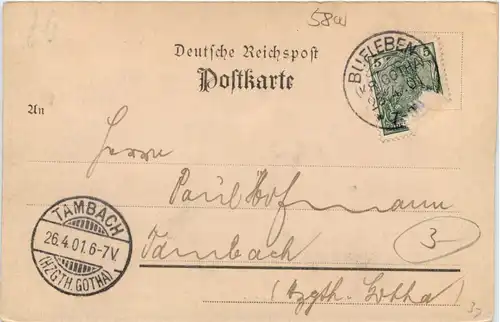 58w
Deutsche Reichspost
Postkarte
BUFLEBEN
(KR. GOTHA)
5
5
An
Herrn
Paul Hofmann
Tambach
(Hzgth. Gotha)
TAMBACH
26.4.01.6-7V.
(HZGTH. GOTHA)
3